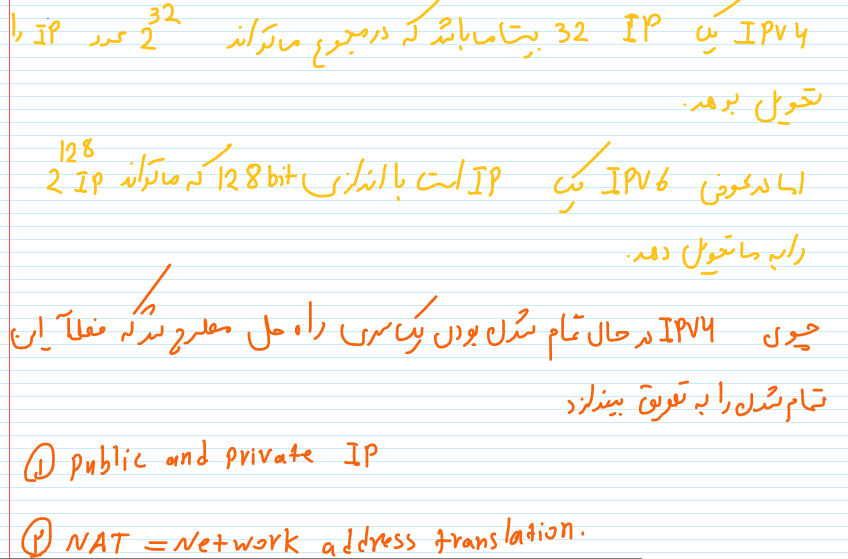 IPV4 یک IP 32 بیت میباشد که در مجموع میتواند 2^32 عدد IP را
تحویل بدهد.
اما در عوض IPV6 یک IP است با اندازی 128bit که میتواند 2^128 IP
را به ما تحویل دهد.
چون IPV4 در حال تمام شدن بودن یک سری راه حل مطرح شد که فعلاً این
تمام شدن را به تعویق بیندازد
① public and private IP
② NAT = Network address translation.